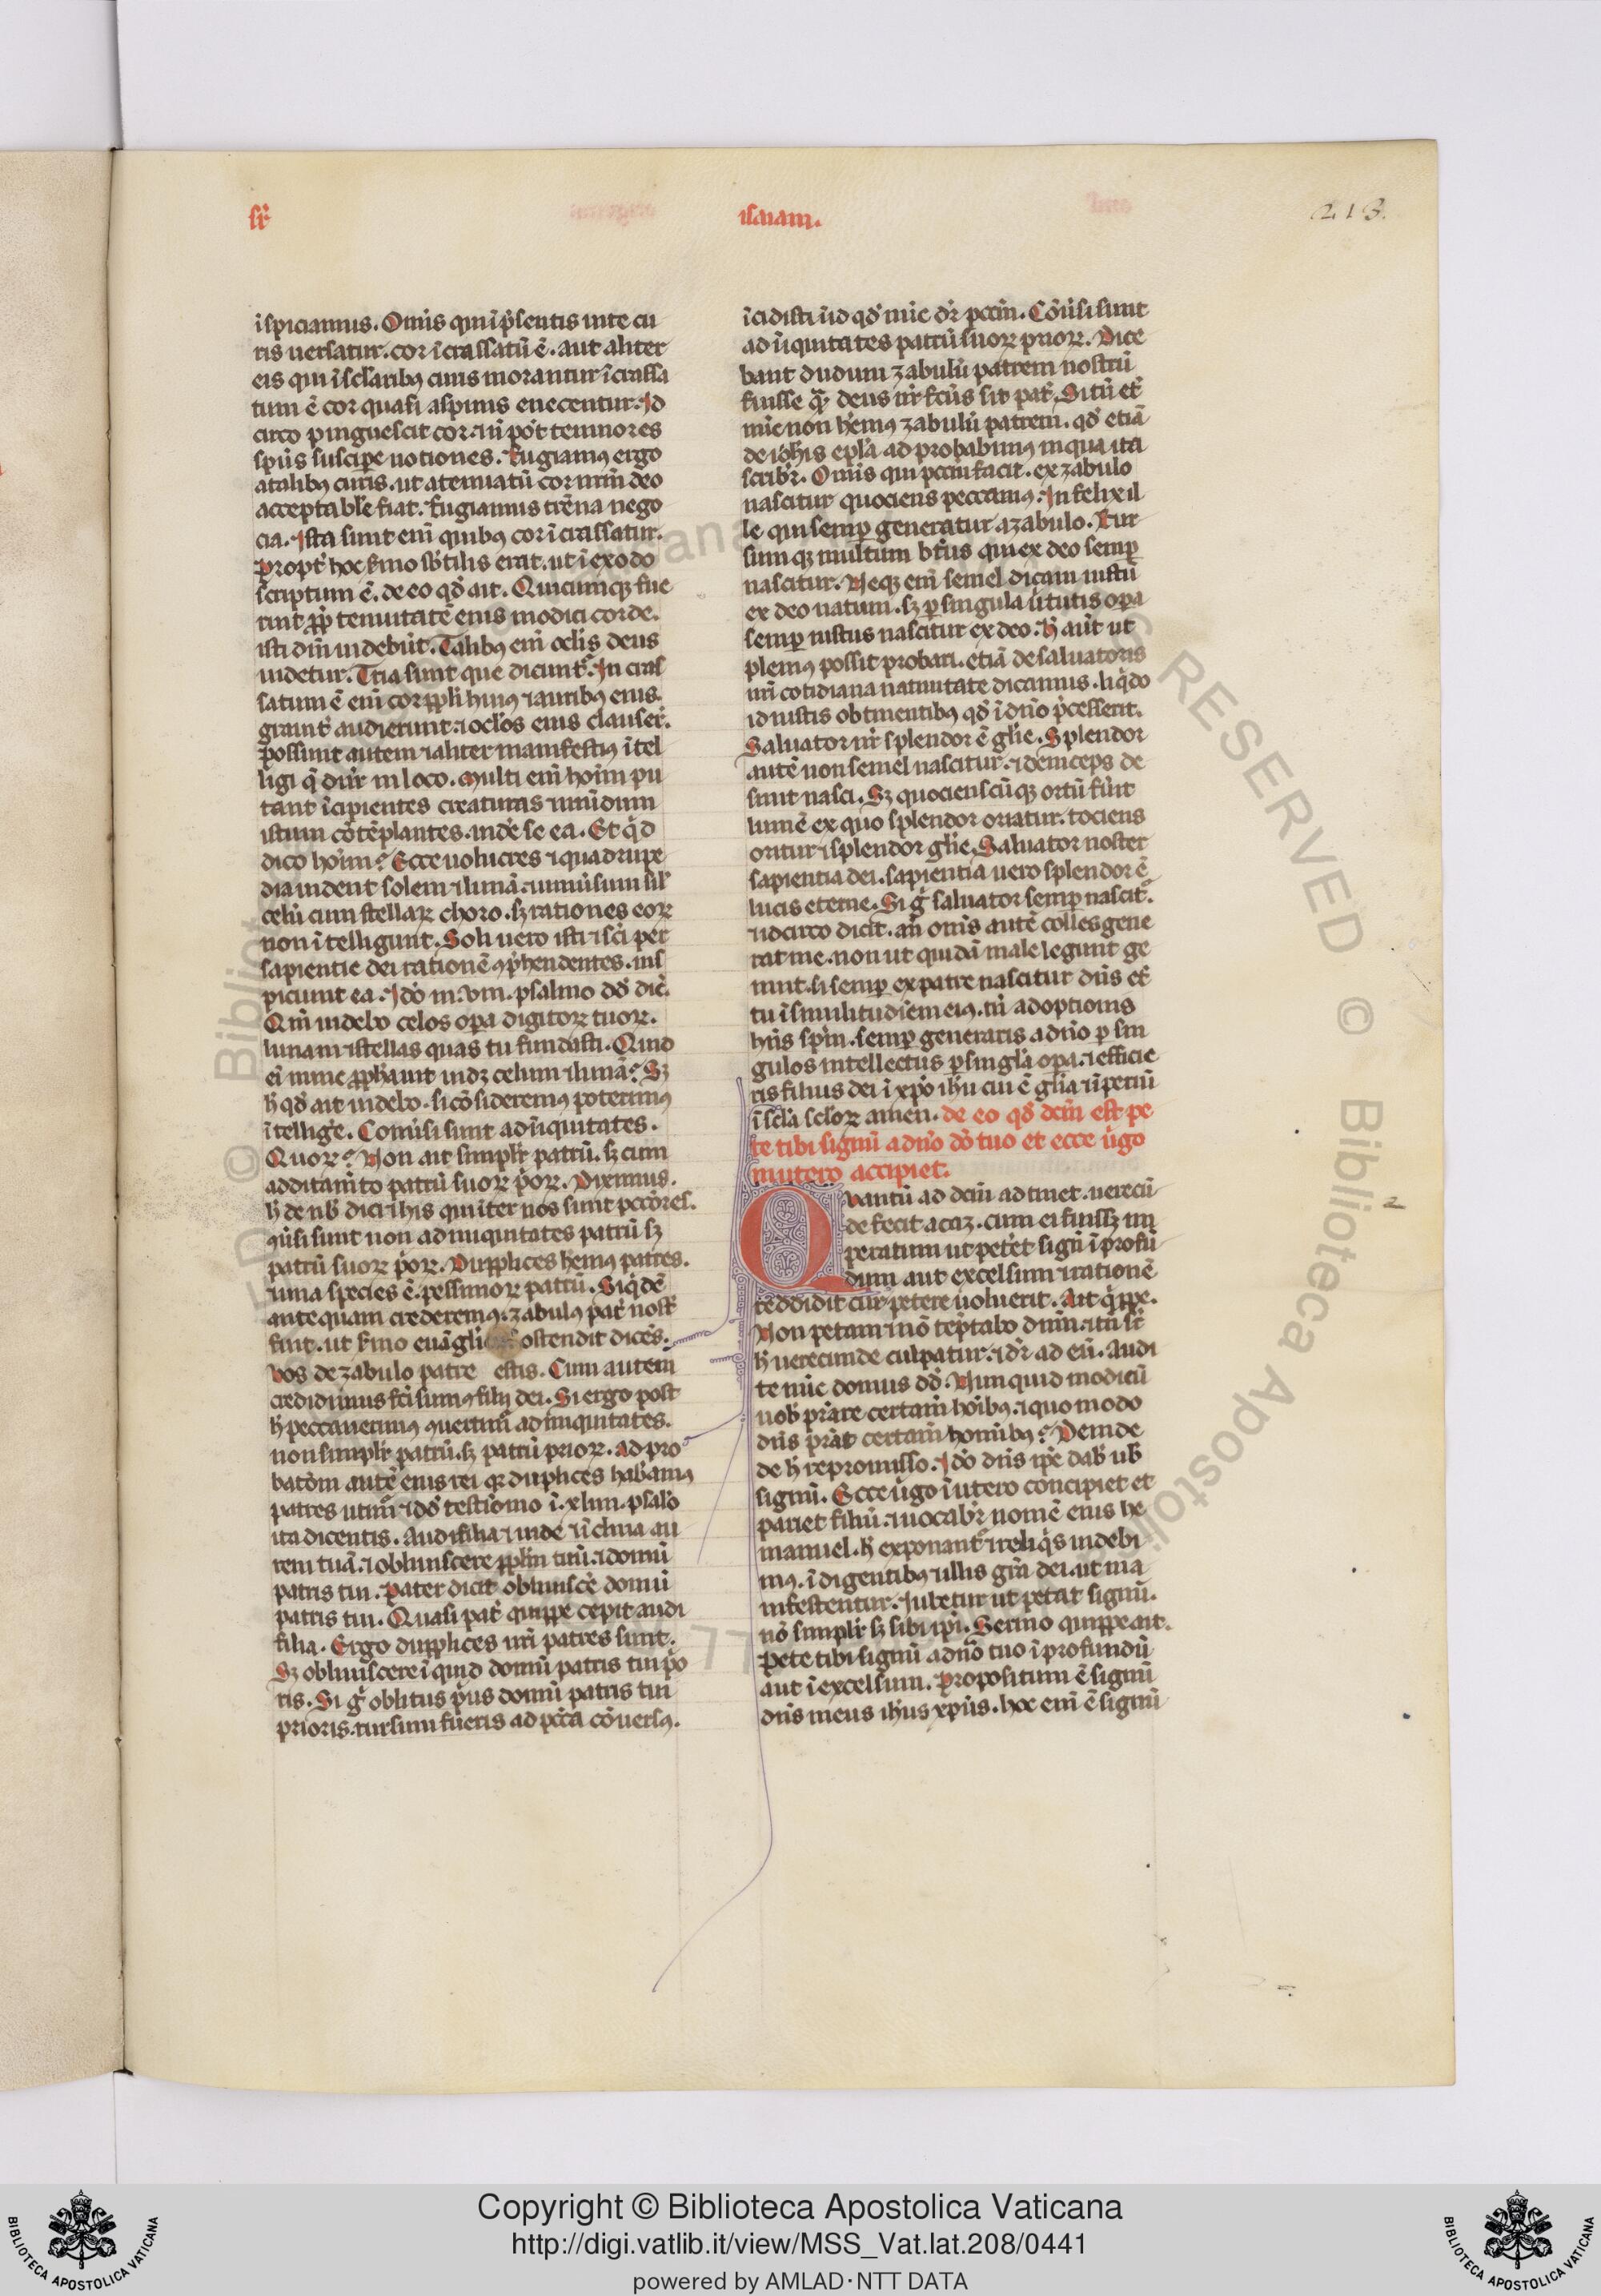 sr̄
isaiam.
218.
īspiciamus. Omīs qui ī p̄sentis uite cu
ris uersatur. cor īcrassatū ē. aut aliter
eis qui ī sclaribꝫ curis morantur īcrassa
tum ē cor quasi a spinis enecentur. Id
circo pinguescit cor.
spūs suscipe notiones. Fugiamꝰ ergo
a talibꝫ curis. ut attenuatū cor nrm̄ deo
acceptabīle fiat. Fugiamus trēna nego
cia. Ista sunt enī quibus cor īcrassatur.
Propt̄ hoc sermo subtilis erat. ut ī exodo
scriptum ē. de eo qd̄ ait. Quicumqꝫ fue
rint ꝓp̄ tenuitatē enis modici corde.
isti dm̄ uidebūt. Talibꝫ enī oclis deus
uidetur. Tria sunt que dicunt̄. In cras
satum ē enī cor ppli huiꝰ ⁊ auribꝫ eius.
grauit̄ audierunt. ⁊ oclos eius clauser̄.
possunt autem ⁊ aliter manifestiꝰ ītel
ligi q̄ dnr̄ in loco. Multi enī hoīm pu
tant īcipientes creaturas ⁊ mūdum
istum cōtēplantes. uide se ea. Et qͥd
dico hoīm? Ecce uolucres ⁊ quadrupe
dia uident solem ⁊ lunā.
celū cum stellaꝝ choro. sꝫ rationes eoꝝ
non ītelligunt. Soli uero isti ⁊ sc̄i per
sapientie dei rationē ꝯp̄hendentes. ins
piciunt ea. Iᵈō in. viii. psalmo dd̄ dic̄.
Qm̄ uidebo celos opa digitoꝝ tuoꝝ.
lunam ⁊ stellas quas tu fundasti. Quid
eī nunc ꝓph̄auit uidꝫ celum ⁊ lunā? Sꝫ
h̄ qd̄ ait uidebo. si cōsideremꝰ poterimꝰ
ītellige. Cōmisi sunt ad īiquitates.
Quoꝝ? Non ait simplr̄ patrū. sꝫ cum
additam̄to patrū suoꝝ p̄oꝝ. Diximus.
h̄ de nb̄ dici ⁊ his qui īter nos sunt pccōres.
ꝯuisi sunt non ad iniquitates patrū sꝫ
patrū suoꝝ p̄oꝝ. Duplices hēmꝰ patres.
⁊ una species ē. pessimoꝝ patrū. Siqͥdē
antequam crederemꝰ. zabulꝰ pat̄ nost̄
fuit. ut sermo euāgli ostendit dicēs.
Vos de zabulo patre estis. Cum autem
credidimus fc̄i sumꝰ filij dei. Si ergo post
h̄ peccauerimꝰ ꝯuertim̄ ad iniquitates.
non simplr̄ patrū. sꝫ patrū prioꝝ. Ad pro
batōm autē eius rei qꝛ duplices habeamꝰ
patres utim̄ ⁊ ido testīonio ī. xliiii. psalō
ita dicentis. Audi filia ⁊ uide ⁊ īclina au
rem tuā. ⁊ obliuiscere pplm̄ tuū. ⁊ domū
patris tui. Pater dicit obliuisce domū
patris tui. Quasi pat̄ quippe cepit audi
filia. Ergo duplices nr̄i patres sunt.
Sꝫ obliuiscere īquid domū patris tui p̄o
ris. Si g̊ oblitus p̄us domū patris tui
prioris. rursum fūeris ad pc̄ca cōuersꝰ.
īcidisti ī id qd̄ nūc dr̄ pccm̄. Cōuisi sunt
ad īiquitates patrū suoꝝ prioꝝ. Dice
bant dudum zabulū patrem nostrū
fuisse qꝛ deus nr̄ fc̄us sit pat̄. Si tū et
nūc non hēmꝰ zabulū patrem. qd̄ etiā
de ioh̄is epla adprobabimꝰ in qua ita
scribr̄. Omīs qui pccm̄ facit. ex zabulo
nascitur quociens peccamꝰ. Infelix il
le qui semp generatur a zabulo. Rur
sum qꝫ multum bt̄us qui ex deo semp
nascitur. Neqꝫ enī semel dicam iustū
ex deo natum. sꝫ p singula ūtutis opa
semp iustus nascitur ex deo. H̄ aūt ut
plemꝰ possit probari. etiā de saluatoris
nr̄i cotidiana natiuitate dicamus. liqͥdo
id iustis obtinentibꝫ qd̄ ī dn̄o p̄cesserit.
Saluator nr̄ splendor ē gl̄ie. Splendor
autē non semel nascitur. ⁊ deinceps de
sinit nasci. Sꝫ quociescūqꝫ ortū fūit
lumē ex quo splendor oriatur. tociens
oritur ⁊ splendor gl̄ie. Saluator noster
sapientia dei. sapientia uero splendor ē
lucis eterne. Si g̊ saluator semp nascit̄.
⁊ idcirco dicit. an̄ omīs autē colles gene
rat me. non ut quidā male legunt ge
nuit. si semp ex patre nascitur dn̄s et
tu ī similitudinem eiꝰ. tm̄ adoptionis
hn̄s spm̄. semp generaris a dn̄o p sin
gulos intellectus p singla opa. ⁊ efficie
ris filius dei ī xp̄o ih̄u cui ē gl̄ia ⁊ īperiū
ī scl̄a scloꝝ amen. de eo qd̄ dcm̄ est pe
te tibi signū a dn̄o dō tuo et ecce ūgo
in utero accipiet.
Quantū ad dcm̄ adtinet. uerecū
de fecit acaz. cum ei fuissꝫ im
peratum ut petet signū ī profū
dum aut excelsum ⁊ rationē
reddidit cur petere noluerit. Ait qͥppe.
Non petam ⁊ nō tēptabo dnm̄.
h̄ uerecunde culpatur. ⁊ dr̄ ad eū. Audi
te nūc domus dd̄. Nunquid modicū
uob̄ p̄are certam̄ hoībꝫ. ⁊ quomodo
dn̄s p̄rat certam̄ hominibꝫ? Deinde
de h̄ repromisso. Iᵈō dn̄s ip̄e dab̄ ub̄
signū. Ecce ūgo ī utero concipiet et
pariet filiū. ⁊ uocabr̄ nomē eius he
manuel. h̄ exponant̄ ⁊ reliqͥs uidebi
mꝰ. īdigentibꝫ illis grā dei. ut ma
nifestentur. Iubetur ut petat signū.
nō simplr̄ sꝫ sibi ip̄i. Sermo quippe ait.
Pete tibi signū a dn̄o tuo ī profundū
aut ī excelsum. Propositum ē signū
dn̄s meus ih̄us xp̄us. hoc enī ē signū
Copyright © Biblioteca Apostolica Vaticana
http://digi.vatlib.it/view/MSS_Vat.lat.208/0441
powered by AMLAD·NTT DATA
BIBLIOTECA APOSTOLICA VATICANA
BIBLIOTECA APOSTOLICA VATICANA